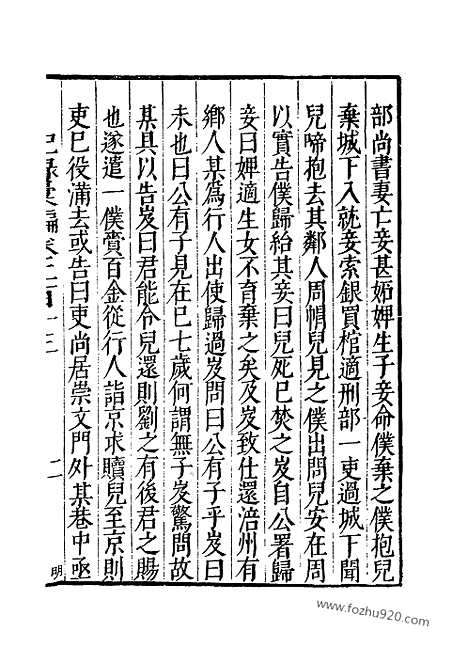 部尚書妻亡妾甚妬婢生子妾命僕棄之僕抱兒
棄城下入就妾索銀買棺適刑部一吏過城下聞
兒啼抱去其鄰人周幘兒見之僕出問兒安在周
以實告僕歸紿其妾曰兒死已焚之岌自公署歸
妾曰婢適生女不育棄之矣及岌致仕還涪州有
鄉人某為行人出使歸過岌問曰公有子乎岌曰
未也曰公有子見在已七歲何謂無子岌驚問故
某具以告岌曰君能令兒還則劉之有後君之賜
也遂遣一僕賫百金從行人詣京求贖兒至京則
吏已役滿去或告曰吏尚居崇文門外某巷中亟
紀録彙編卷之二百十三
二
明
www.fozhu920.com